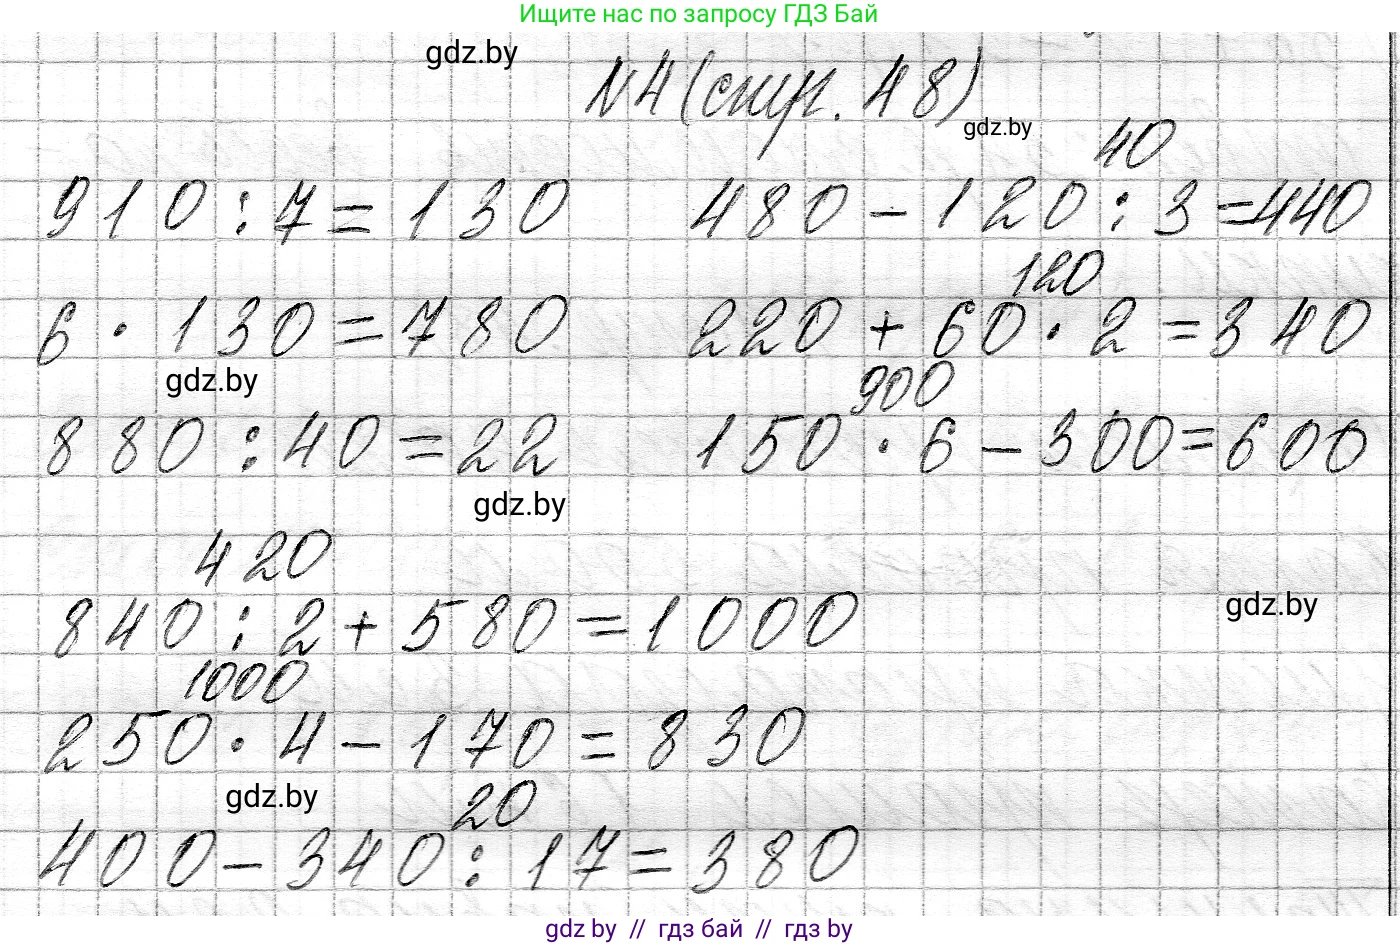 Ищите нас по запросу ГДЗ Бай
gdz.by
№4 (стр. 48)
gdz.by
40
910 : 7 = 130 480 - 120 : 3 = 440
120
6 · 130 = 780 220 + 60 · 2 = 340
gdz.by 900
880 : 40 = 22 150 · 6 - 300 = 600
gdz.by
420
840 : 2 + 580 = 1000
gdz.by
1000
250 · 4 - 170 = 830
gdz.by 20
400 - 340 : 17 = 380
gdz.by // гдз бай // гдз by